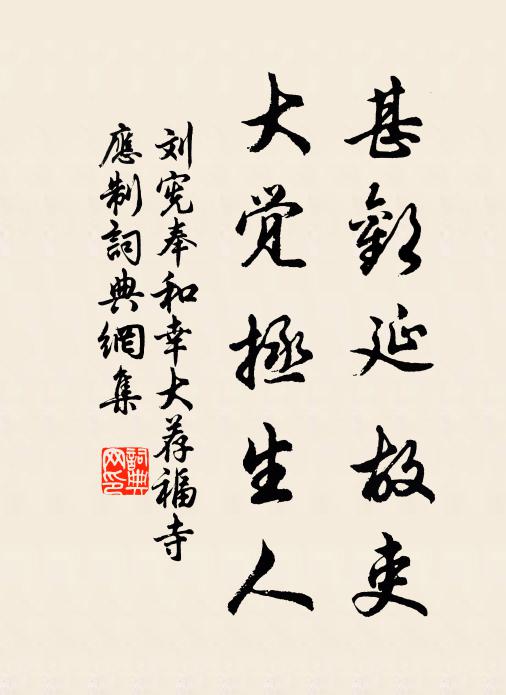 甚歡延故吏
大觉拯生人
刘宪奉和幸大荐福寺
應制詞典網集
詞典网印